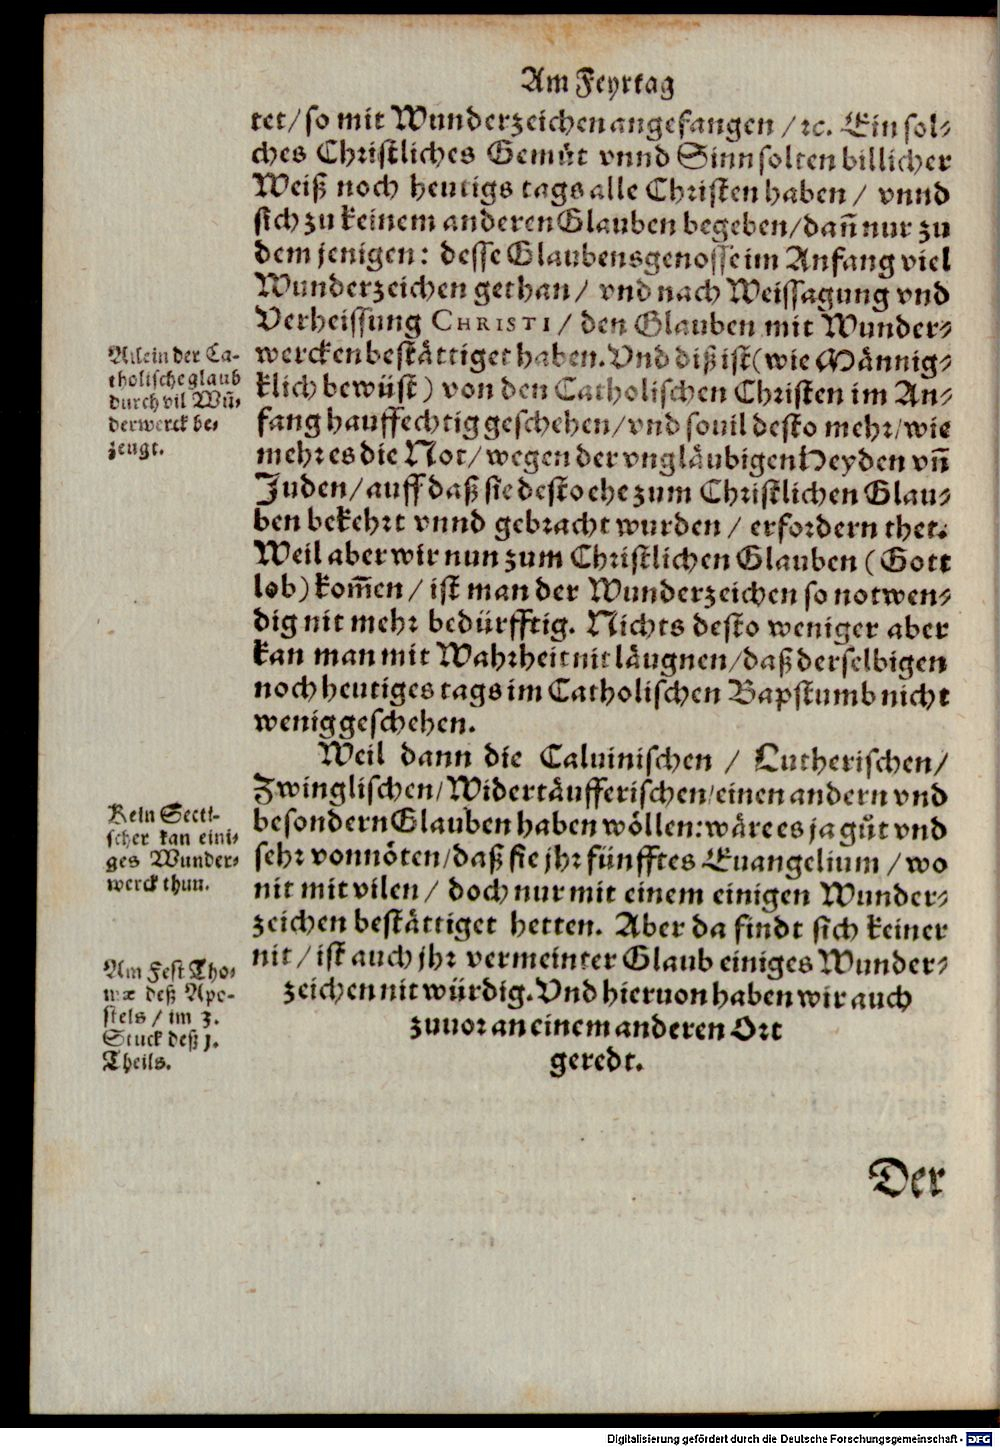 Am Feyrtag
tet/ so mit Wunderzeichen angefangen / ꝛc. Ein sol⸗
ches Christliches Gemüt vnnd Sinn solten billicher
Weiß noch heutigs tags alle Christen haben / vnnd
sich zu keinem anderen Glauben begeben/ dañ nur zu
dem jenigen: desse Glaubensgenosse im Anfang viel
Wunderzeichen gethan/ vnd nach Weissagung vnd
Verheissung CHRISTI / den Glauben mit Wunder⸗
wercken bestättiget haben. Vnd diß ist (wie Männig⸗
klich bewüst) von den Catholischen Christen im An⸗
fang hauffechtig geschehen/ vnd souil desto mehr/ wie
mehr es die Not/ wegen der vngläubigen Heyden vñ
Juden/ auff daß sie desto ehe zum Christlichen Glau⸗
ben bekehrt vnnd gebracht wurden / erfordern thet.
Weil aber wir nun zum Christlichen Glauben (Gott
lob) kom̃en / ist man der Wunderzeichen so notwen⸗
dig nit mehr bedürfftig. Nichts desto weniger aber
kan man mit Wahrheit nit läugnen/ daß derselbigen
noch heutiges tags im Catholischen Bapstumb nicht
wenig geschehen.
Weil dann die Caluinischen / Lutherischen/
Zwinglischen/ Widertäufferischen/ einen andern vnd
besondern Glauben haben wöllen: wäre es ja gůt vnd
sehr vonnöten/ daß sie jhr fünfftes Euangelium / wo
nit mit vilen / doch nur mit einem einigen Wunder⸗
zeichen bestättiget hetten. Aber da findt sich keiner
nit / ist auch jhr vermeinter Glaub einiges Wunder⸗
zeichen nit würdig. Vnd hieruon haben wir auch
zuuor an einem anderen Ort
geredt.
Allein der Ca⸗
tholische glaub
durch vil Wũ⸗
derwerck be⸗
zeugt.
Kein Secti⸗
scher kan eini⸗
ges Wunder⸗
werck thun.
Am Fest Tho⸗
mæ deß Apo⸗
stels / im 3.
Stuck deß j.
Theils.
Der
Digitalisierung gefördert durch die Deutsche Forschungsgemeinschaft - DFG